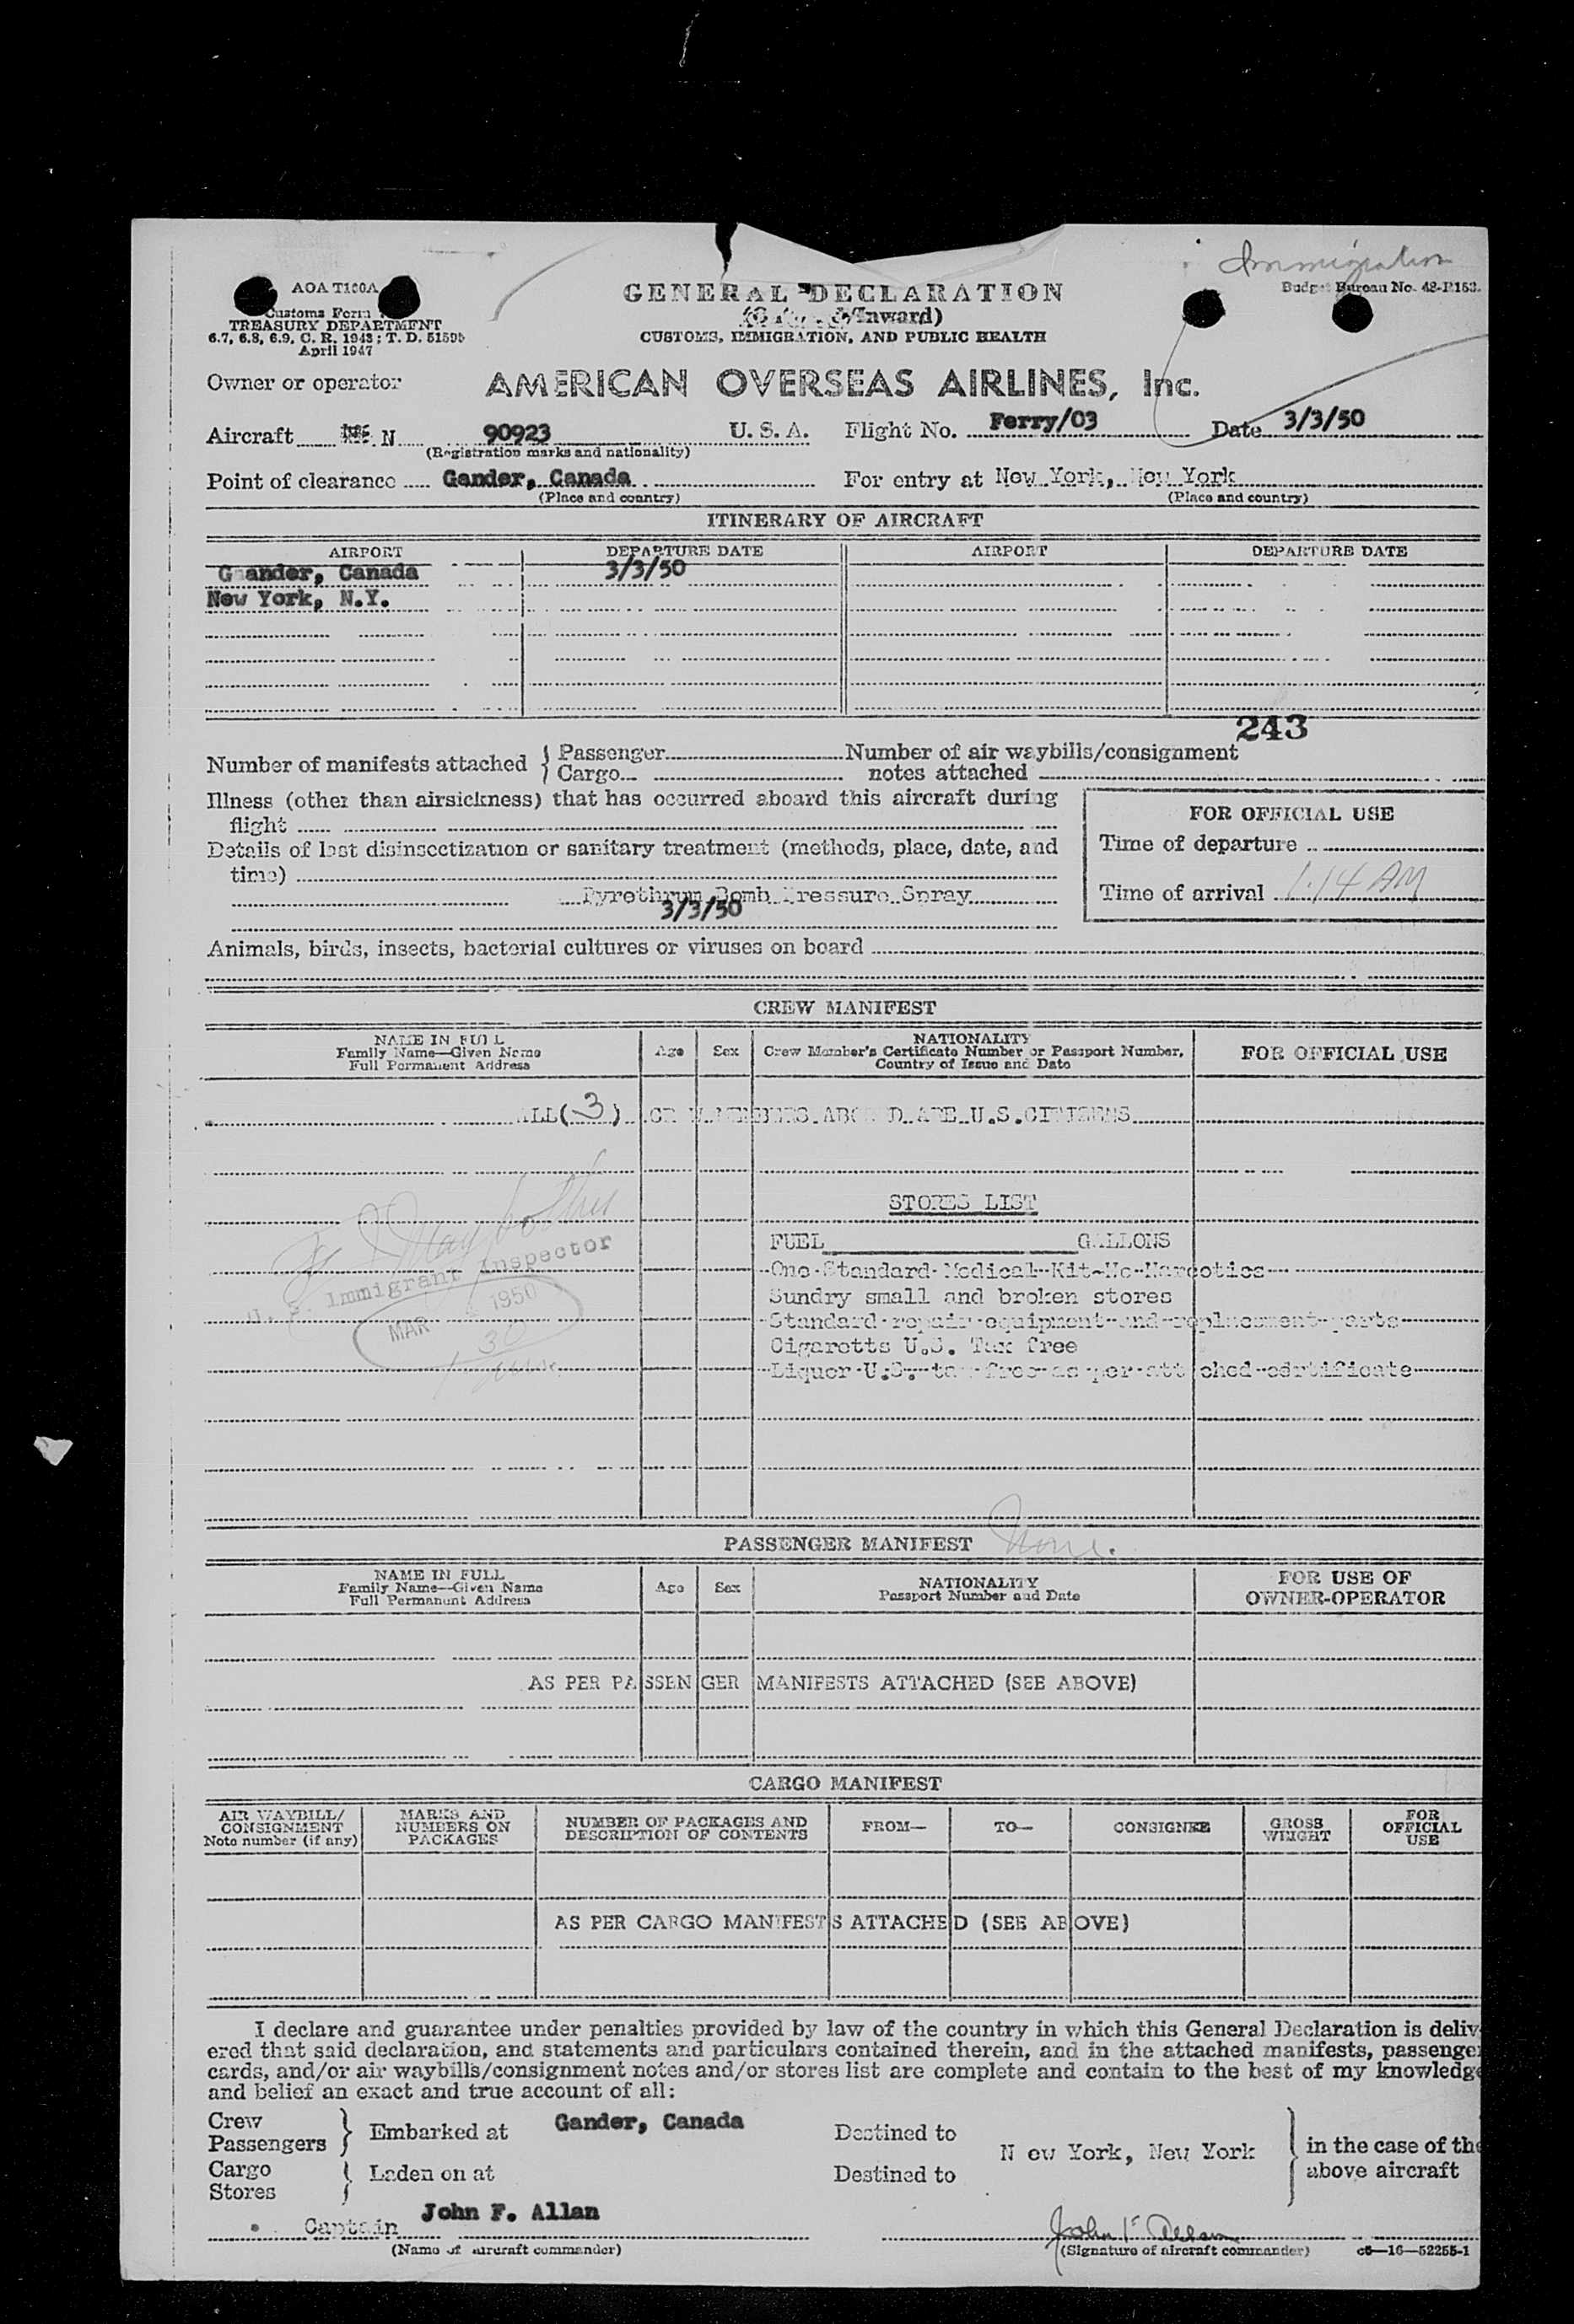 Immigration
AOA T100A
Customs Form
TREASURY DEPARTMENT
6.7, 6.8, 6.9, C. R. 1943; T. D. 51595
April 1947
Budget Bureau No. 48-R153.
GENERAL DECLARATION
/Inward)
CUSTOMS, IMMIGRATION, AND PUBLIC HEALTH
Owner or operator AMERICAN OVERSEAS AIRLINES, Inc.
Aircraft N 90923 U. S. A. Flight No. Ferry/03 Date 3/3/50
(Registration marks and nationality)
Point of clearance Gander, Canada For entry at New York, New York
(Place and country) (Place and country)
ITINERARY OF AIRCRAFT
AIRPORT DEPARTURE DATE AIRPORT DEPARTURE DATE
Gander, Canada 3/3/50
New York, N.Y.
243
Number of manifests attached { Passenger Number of air waybills/consignment
Cargo notes attached
Illness (other than airsickness) that has occurred aboard this aircraft during
flight
Details of last disinsectization or sanitary treatment (methods, place, date, and
time)
Pyrethrum Bomb Pressure Spray
3/3/50
FOR OFFICIAL USE
Time of departure
Time of arrival 1:14 AM
Animals, birds, insects, bacterial cultures or viruses on board
CREW MANIFEST
NAME IN FULL
Family Name—Given Name
Full Permanent Address
Age Sex
NATIONALITY
Crew Member's Certificate Number or Passport Number,
Country of Issue and Date
FOR OFFICIAL USE
ALL (3) CREW MEMBERS ABOARD ARE U.S. CITIZENS
STORES LIST
FUEL GALLONS
One Standard Medical Kit-No Narcotics
Sundry small and broken stores
Standard repair equipment and replacement parts
Cigaretts U.S. Tax free
Liquor U.S. tax free as per attached certificate
U. S. Immigrant Inspector
MAR 1950
PASSENGER MANIFEST None.
NAME IN FULL
Family Name—Given Name
Full Permanent Address
Age Sex
NATIONALITY
Passport Number and Date
FOR USE OF
OWNER-OPERATOR
AS PER PASSENGER MANIFESTS ATTACHED (SEE ABOVE)
CARGO MANIFEST
AIR WAYBILL/
CONSIGNMENT
Note number (if any)
MARKS AND
NUMBERS ON
PACKAGES
NUMBER OF PACKAGES AND
DESCRIPTION OF CONTENTS
FROM— TO— CONSIGNEE
GROSS
WEIGHT
FOR
OFFICIAL
USE
AS PER CARGO MANIFESTS ATTACHED (SEE ABOVE)
I declare and guarantee under penalties provided by law of the country in which this General Declaration is deliv-
ered that said declaration, and statements and particulars contained therein, and in the attached manifests, passenger
cards, and/or air waybills/consignment notes and/or stores list are complete and contain to the best of my knowledge
and belief an exact and true account of all:
Crew
Passengers } Embarked at Gander, Canada Destined to
N ew York, New York } in the case of the
above aircraft
Cargo
Stores } Laden on at Destined to
Captain John F. Allan John F Allan
(Name of aircraft commander) (Signature of aircraft commander) c6—16—52255-1